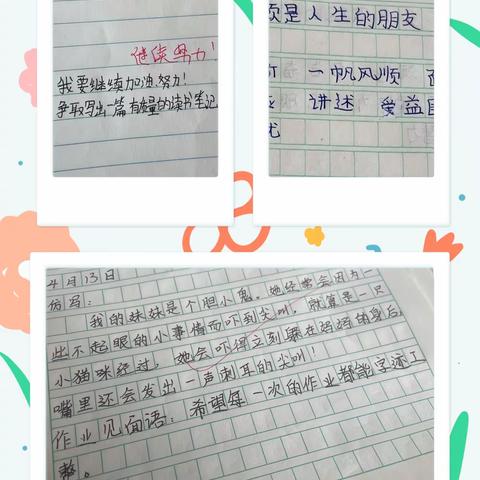 继续努力！
我要继续加油,努力！
争取写出一篇有质量的读书笔记
须是人生的朋友
一帆风顺
讲述 受益
忧
4月13日
仿写：
我的妹妹是个胆小鬼。她经常会因为一
些不起眼的小事情而吓到尖叫。就算是一只
小猫咪经过，她会吓得立刻躲在妈妈的身后，
嘴里还会发出一声刺耳的尖叫！
作业见面语：希望每一次的作业都能字迹工
整。